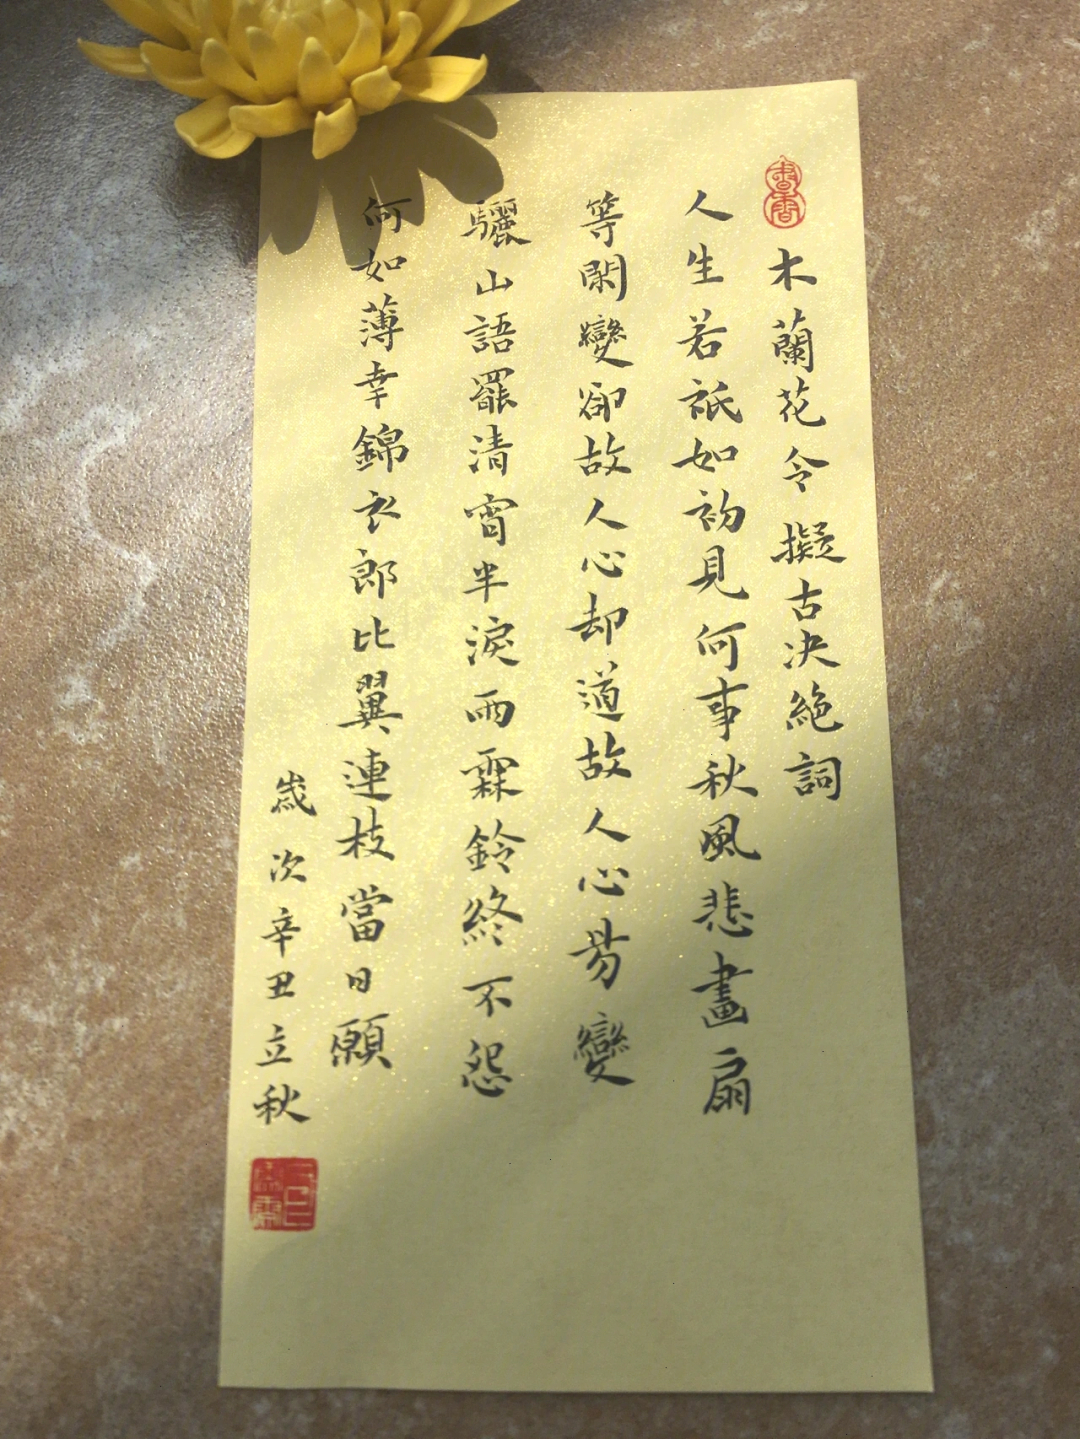 書香
木蘭花令擬古決絕詞
人生若祇如初見何事秋風悲畫扇
等閑變卻故人心却道故人心易變
驪山語罷清宵半淚雨霖鈴終不怨
何如薄幸錦衣郎比翼連枝當日願
歲次辛丑立秋